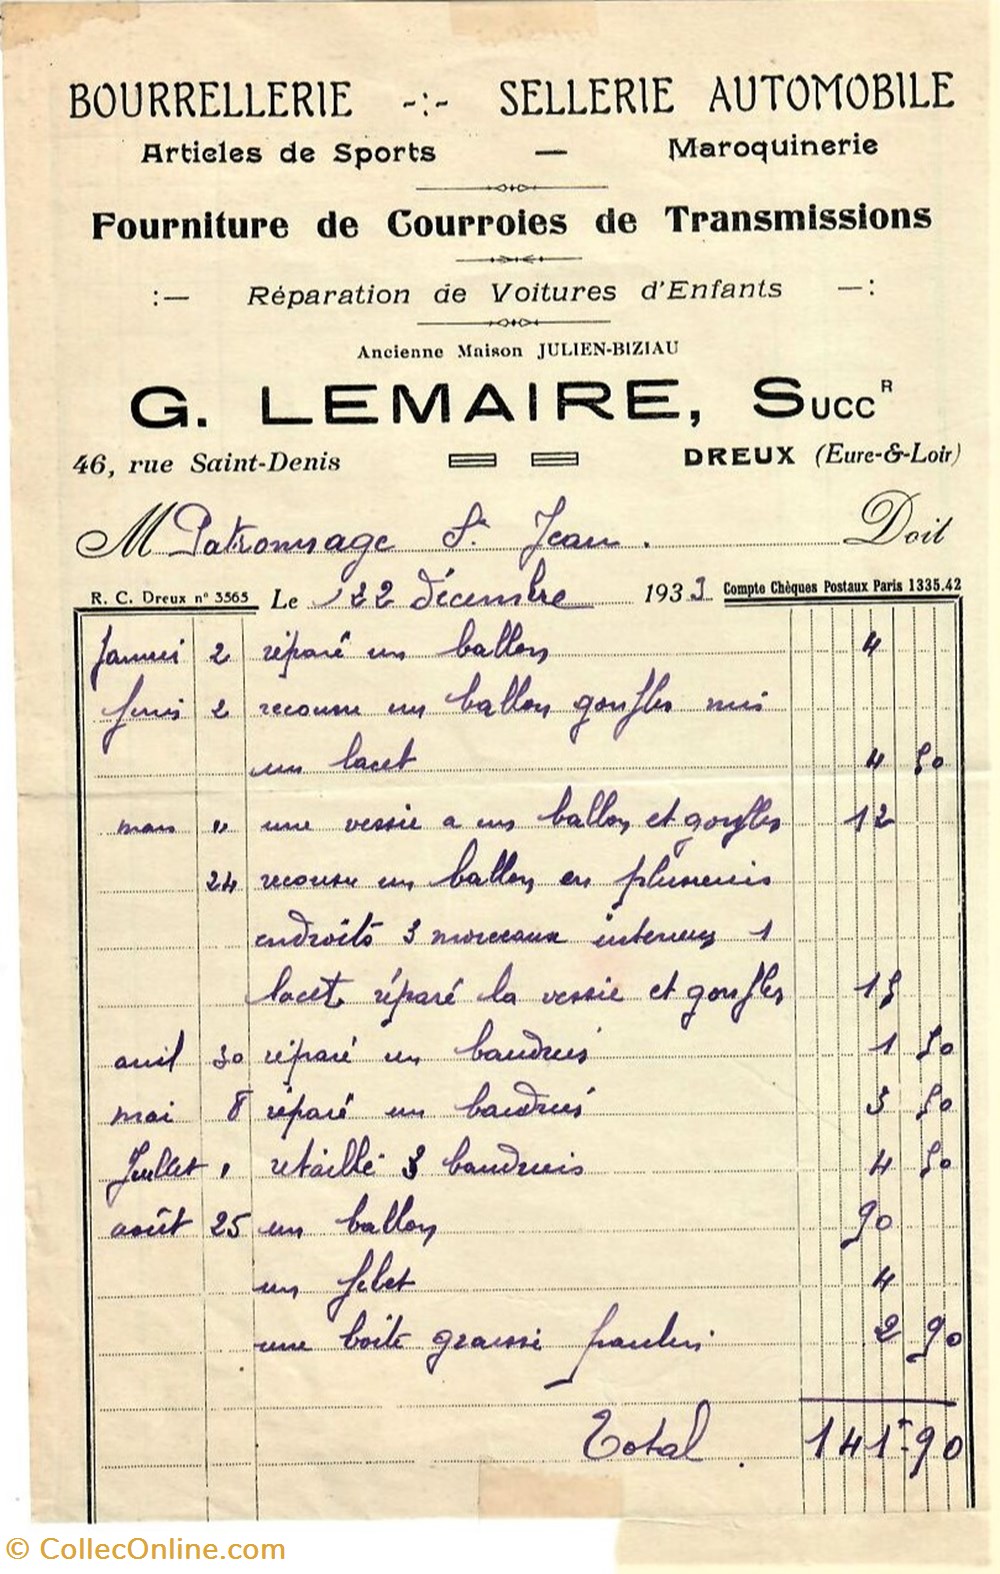 BOURRELLERIE -:- SELLERIE AUTOMOBILE
Articles de Sports — Maroquinerie
Fourniture de Courroies de Transmissions
:— Réparation de Voitures d'Enfants —:
Ancienne Maison JULIEN-BIZIAU
G. LEMAIRE, Succʳ
46, rue Saint-Denis DREUX (Eure-&-Loir)
M Patronnage St Jean. Doit
R. C. Dreux n° 3565 Le 22 décembre 1933 Compte Chèques Postaux Paris 1335.42
Janvier 2 réparé un ballon 4
2 recousu un ballon gonfler mis
un lacet 4 50
mars " une vessie a un ballon et gonfler 12
24 recousu un ballon en plusieurs
endroits 3 morceaux interieurs 1
lacet réparé la vessie et gonfler 15
avril 30 réparé un baudrier 1 50
mai 8 réparé un baudrier 3 50
Juillet " retaillé 3 baudriers 4 50
août 25 un ballon 90
un filet 4
une boite graisse 2 90
Total 141 - 90
© CollecOnline.com